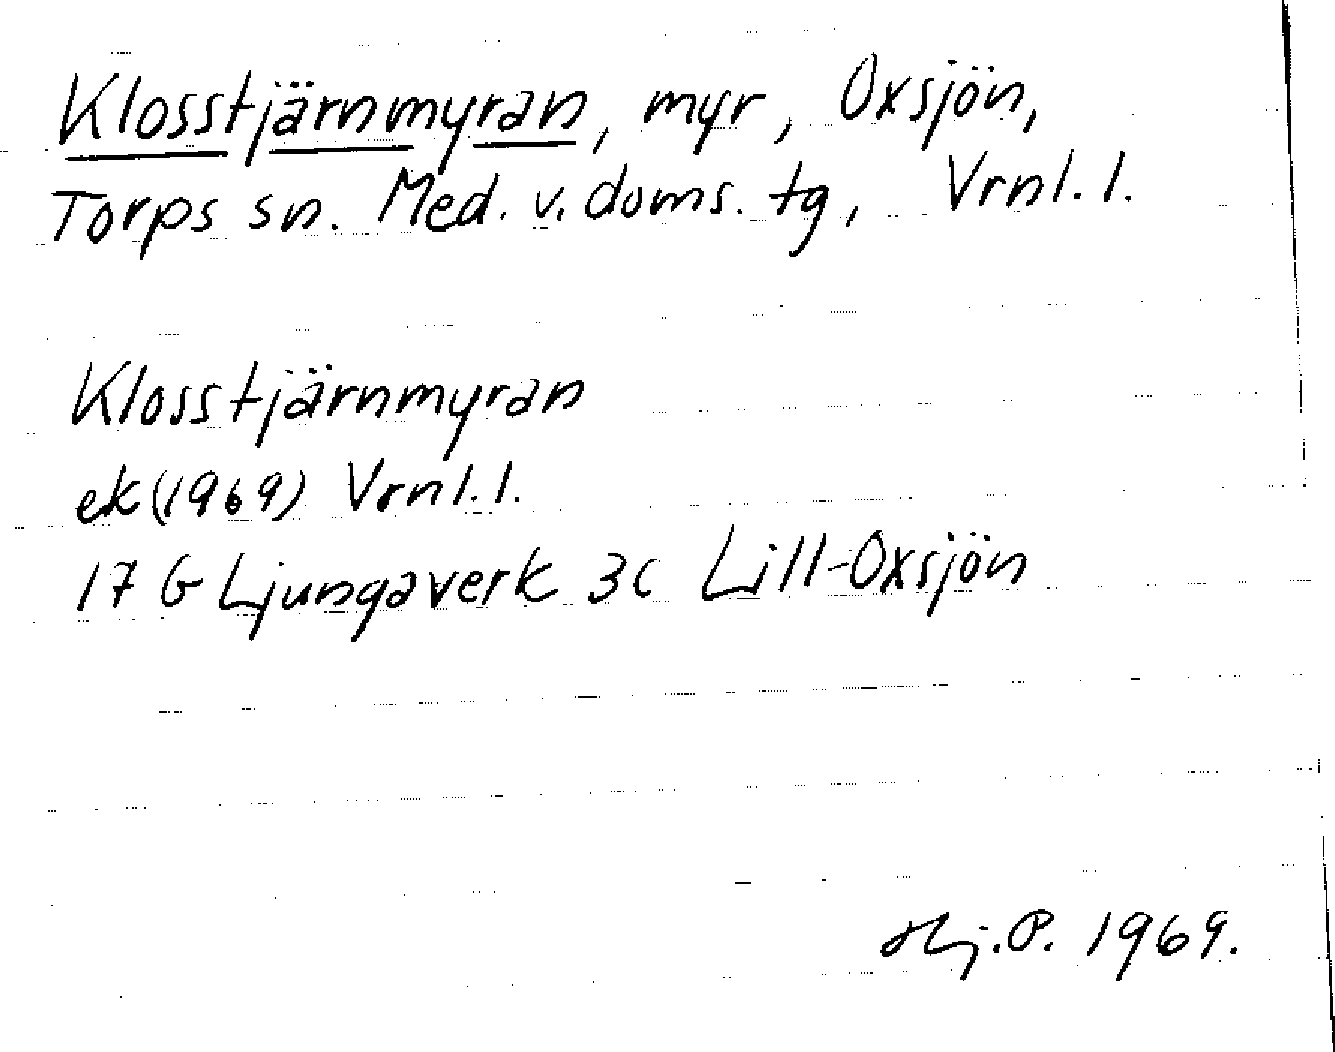 Klosstjärnmyran, myr, Oxsjön,
Torps sn. Med. v. doms. tg, Vrnl. l.
Klosstjärnmyran
ek (1969) Vrnl. l.
17 G Ljungaverk 3c Lill-Oxsjön
Hj. P. 1969.